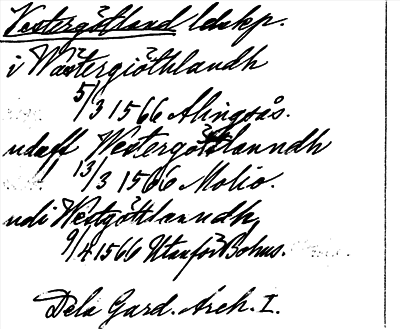 Vestergötland ldskp.
i Wästergiöthlandh
5/3 1566 Alingsås.
udaff Westergötlanndh
13/3 1566 Molio.
udi Westgöttlanndh
9/4 1566 Utanför Bohus.
Dela Gard. Arch. I.